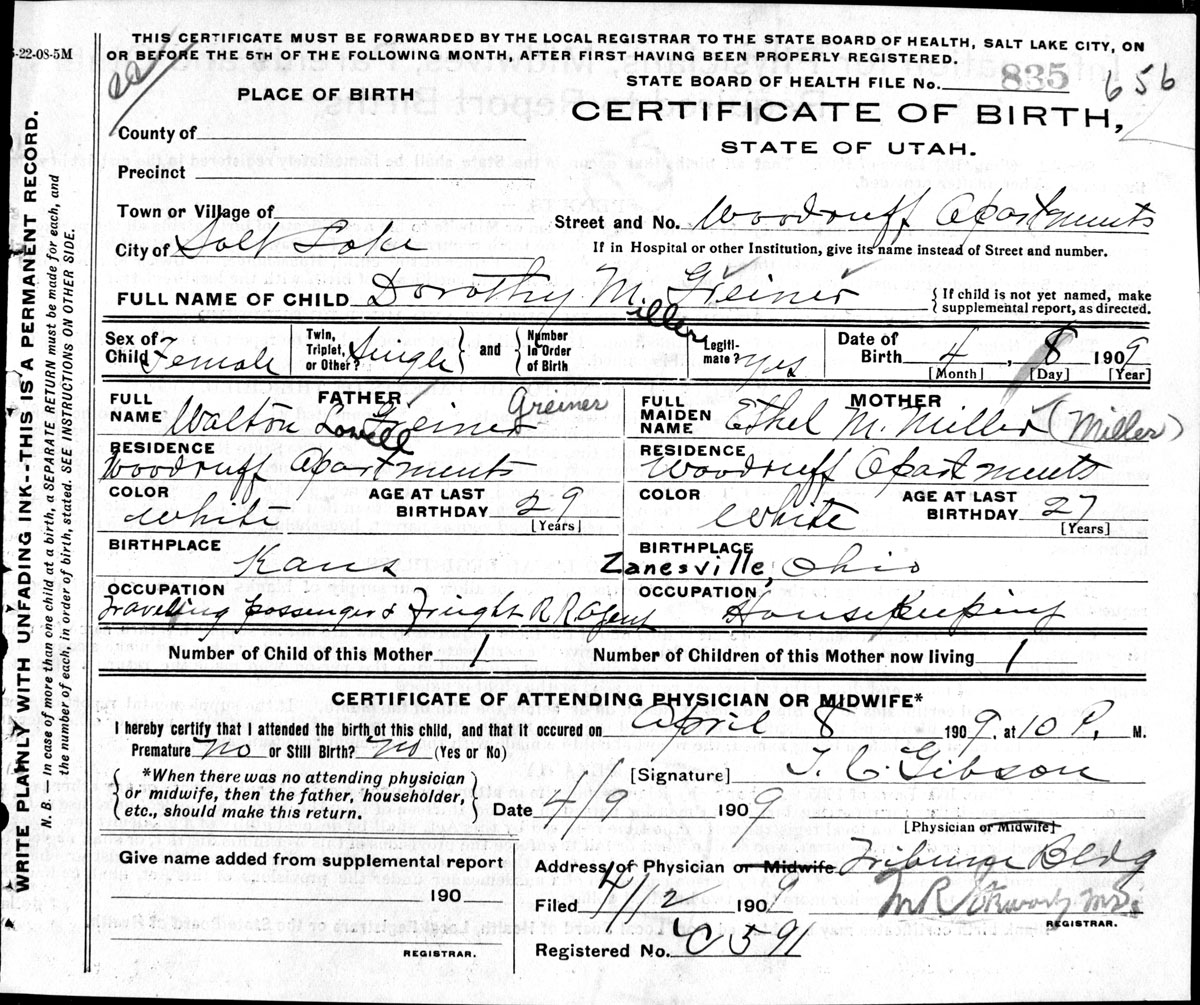 5-22-08-5M
THIS CERTIFICATE MUST BE FORWARDED BY THE LOCAL REGISTRAR TO THE STATE BOARD OF HEALTH, SALT LAKE CITY, ON
OR BEFORE THE 5TH OF THE FOLLOWING MONTH, AFTER FIRST HAVING BEEN PROPERLY REGISTERED.
STATE BOARD OF HEALTH FILE No. 835 656
PLACE OF BIRTH
CERTIFICATE OF BIRTH,
STATE OF UTAH.
County of
Precinct
Town or Village of
Street and No. Woodruff Apartments
City of Salt Lake
If in Hospital or other Institution, give its name instead of Street and number.
FULL NAME OF CHILD Dorothy M. Greiner
iller
{ If child is not yet named, make
supplemental report, as directed.
Sex of Child Female
Twin, Triplet, or Other? Single } and { Number in Order of Birth
Legitimate? Yes
Date of Birth 4, 8 1909
[Month] [Day] [Year]
FATHER
FULL NAME Walton Lowell Greiner Greiner
MOTHER
FULL MAIDEN NAME Ethel M. Miller (Miller)
RESIDENCE Woodruff Apartments
RESIDENCE Woodruff Apartments
COLOR White
AGE AT LAST BIRTHDAY 29 [Years]
COLOR White
AGE AT LAST BIRTHDAY 27 [Years]
BIRTHPLACE Kans
BIRTHPLACE Zanesville, Ohio
OCCUPATION Travelling passenger & Freight R R Agent
OCCUPATION Housekeeping
Number of Child of this Mother 1
Number of Children of this Mother now living 1
CERTIFICATE OF ATTENDING PHYSICIAN OR MIDWIFE*
I hereby certify that I attended the birth of this child, and that it occured on April 8 1909, at 10 P. M.
Premature no or Still Birth? no (Yes or No)
{ *When there was no attending physician
or midwife, then the father, householder,
etc., should make this return. }
[Signature] T. C. Gibson
Date 4/9 1909
[Physician or Midwife]
Give name added from supplemental report
190
REGISTRAR.
Address of Physician or Midwife Tribune Bldg
Filed 4/12 1909
REGISTRAR.
Registered No. C 591
WRITE PLAINLY WITH UNFADING INK--THIS IS A PERMANENT RECORD.
N. B. — In case of more than one child at a birth, a SEPARATE RETURN must be made for each, and
the number of each, in order of birth, stated. SEE INSTRUCTIONS ON OTHER SIDE.